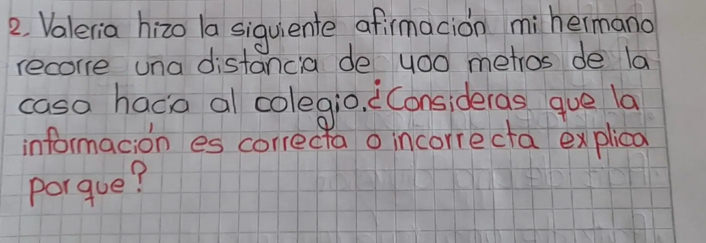 2. Valeria hizo la siguiente afirmación mi hermano
recorre una distancia de 400 metros de la
casa hacia al colegio. ¿Consideras que la
información es correcta o incorrecta explica
por que?